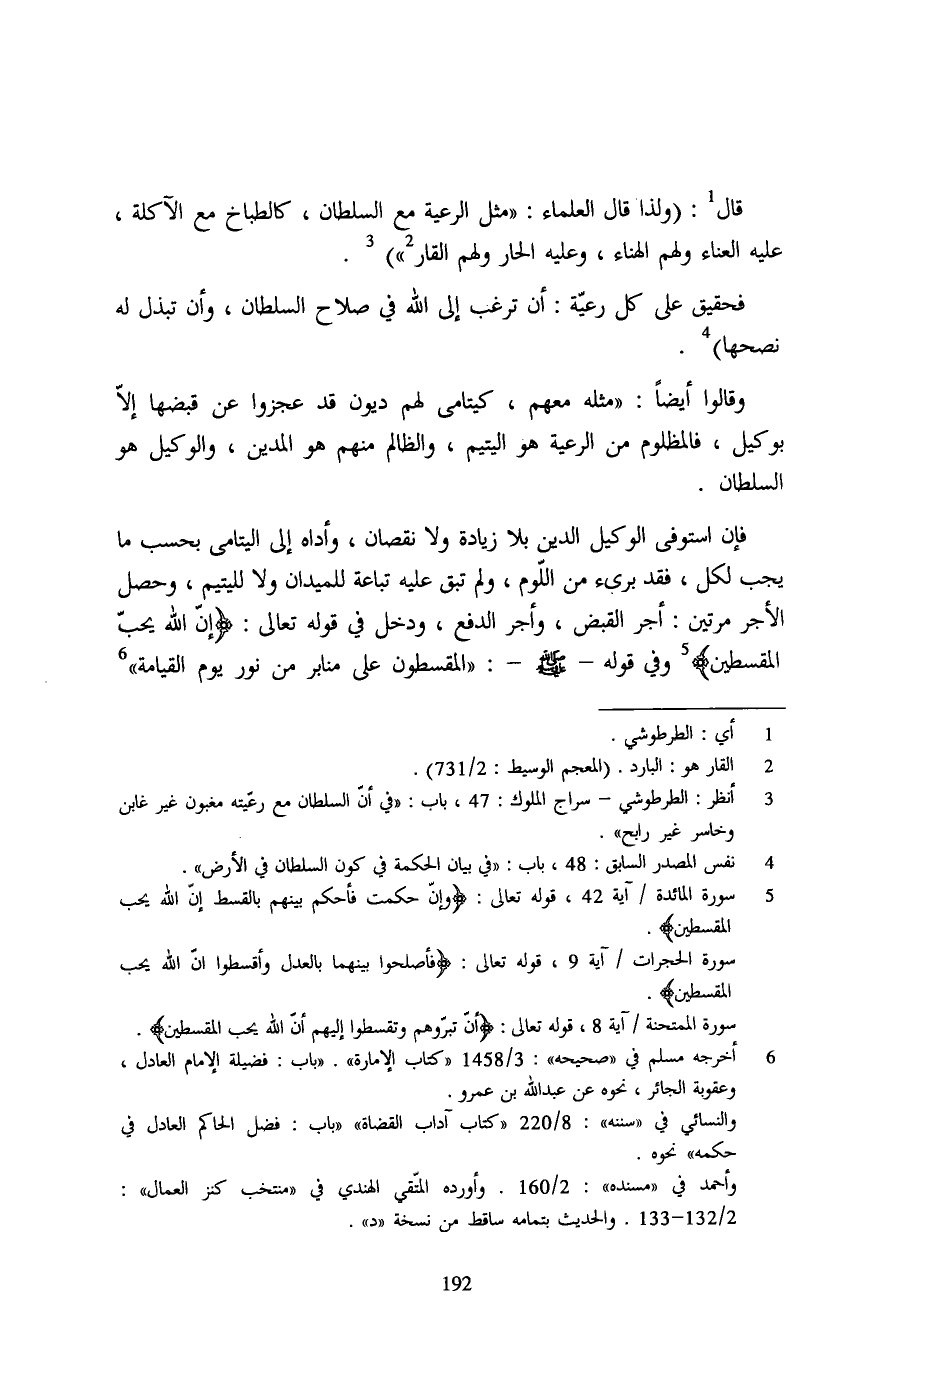 قال1 : (ولذا قال العلماء : «مثل الرعية مع السلطان ، كالطباخ مع الآكلة ،
عليه العناء ولهم الهناء ، وعليه الحار ولهم القار2») 3 .
فحقيق على كل رعيّة : أن ترغب إلى الله في صلاح السلطان ، وأن تبذل له
نصحها)4 .
وقالوا أيضاً : «مثله معهم ، كيتامى لهم ديون قد عجزوا عن قبضها إلاّ
بوكيل ، فالمظلوم من الرعية هو اليتيم ، والظالم منهم هو المدين ، والوكيل هو
السلطان .
فإن استوفى الوكيل الدين بلا زيادة ولا نقصان ، وأداه إلى اليتامى بحسب ما
يجب لكل ، فقد برىء من اللّوم ، ولم تبق عليه تباعة للميدان ولا لليتيم ، وحصل
الأجر مرتين : أجر القبض ، وأجر الدفع ، ودخل في قوله تعالى : ﴿إنّ الله يحبّ
المقسطين﴾5 وفي قوله – ﷺ – : «المقسطون على منابر من نور يوم القيامة»6
1 أي : الطرطوشي .
2 القار هو : البارد . (المعجم الوسيط : 731/2) .
3 أنظر : الطرطوشي – سراج الملوك : 47 ، باب : «في أنّ السلطان مع رعّيته مغبون غير غابن
وخاسر غير رابح» .
4 نفس المصدر السابق : 48 ، باب : «في بيان الحكمة في كون السلطان في الأرض» .
5 سورة المائدة / آية 42 ، قوله تعالى : ﴿وإنّ حكمت فأحكم بينهم بالقسط إنّ الله يحب
المقسطين﴾ .
سورة الحجرات / آية 9 ، قوله تعالى : ﴿فأصلحوا بينهما بالعدل وأقسطوا انّ الله يحب
المقسطين﴾ .
سورة الممتحنة / آية 8 ، قوله تعالى : ﴿أنّ تبرّوهم وتقسطوا إليهم أنّ الله يحب المقسطين﴾ .
6 أخرجه مسلم في «صحيحه» : 1458/3 «كتاب الإمارة» . «باب : فضيلة الإمام العادل ،
وعقوبة الجائر ، نحوه عن عبدالله بن عمرو .
والنسائي في «سننه» : 220/8 «كتاب آداب القضاة» «باب : فضل الحاكم العادل في
حكمه» نحوه .
وأحمد في «مسنده» : 160/2 . وأورده المتّقي الهندي في «منتخب كنز العمال» :
132/2–133 . والحديث بتمامه ساقط من نسخة «د» .
192